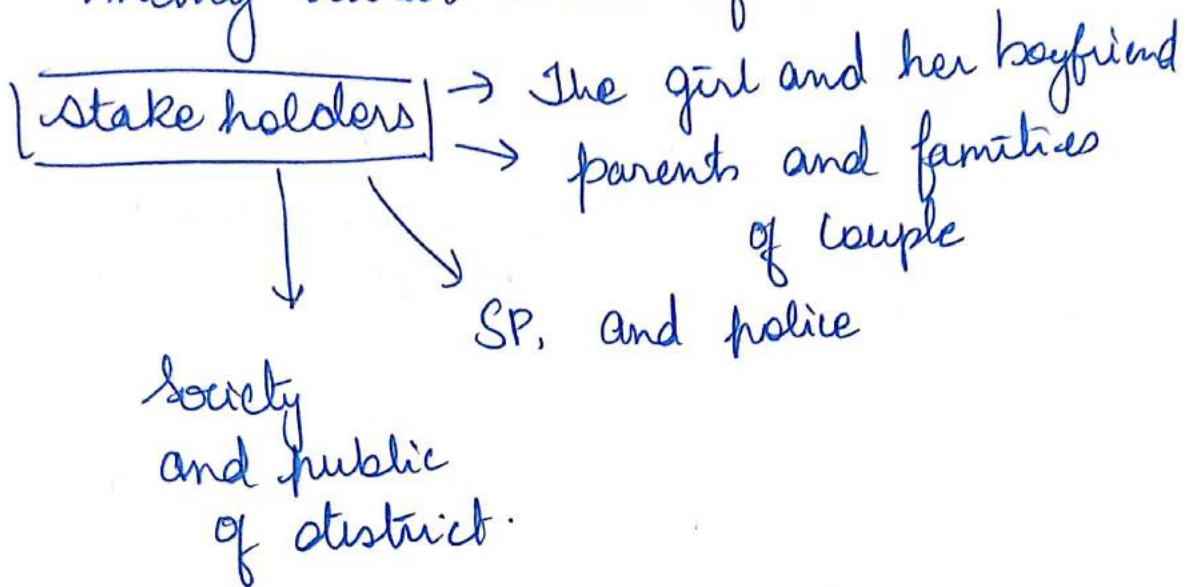 Stake holders → The girl and her boyfriend
→ parents and families
of couple
SP, and police
Society
and public
of district.